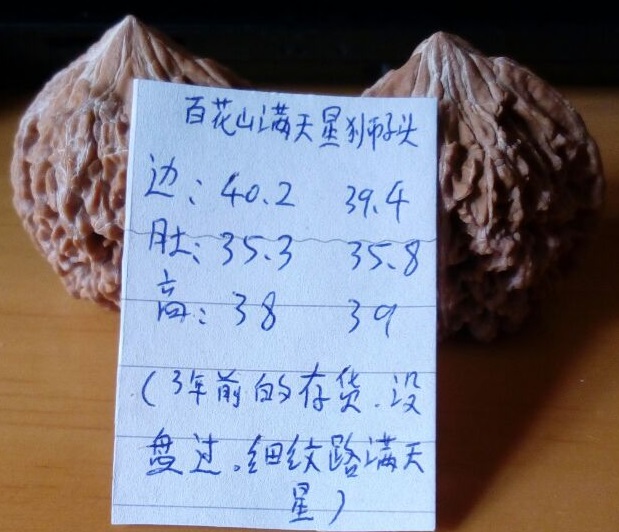 百花山满天星狮子头
边: 40.2 39.4
肚: 35.3 35.8
高: 38 39
(3年前的存货.没
盘过.细纹路满天
星)